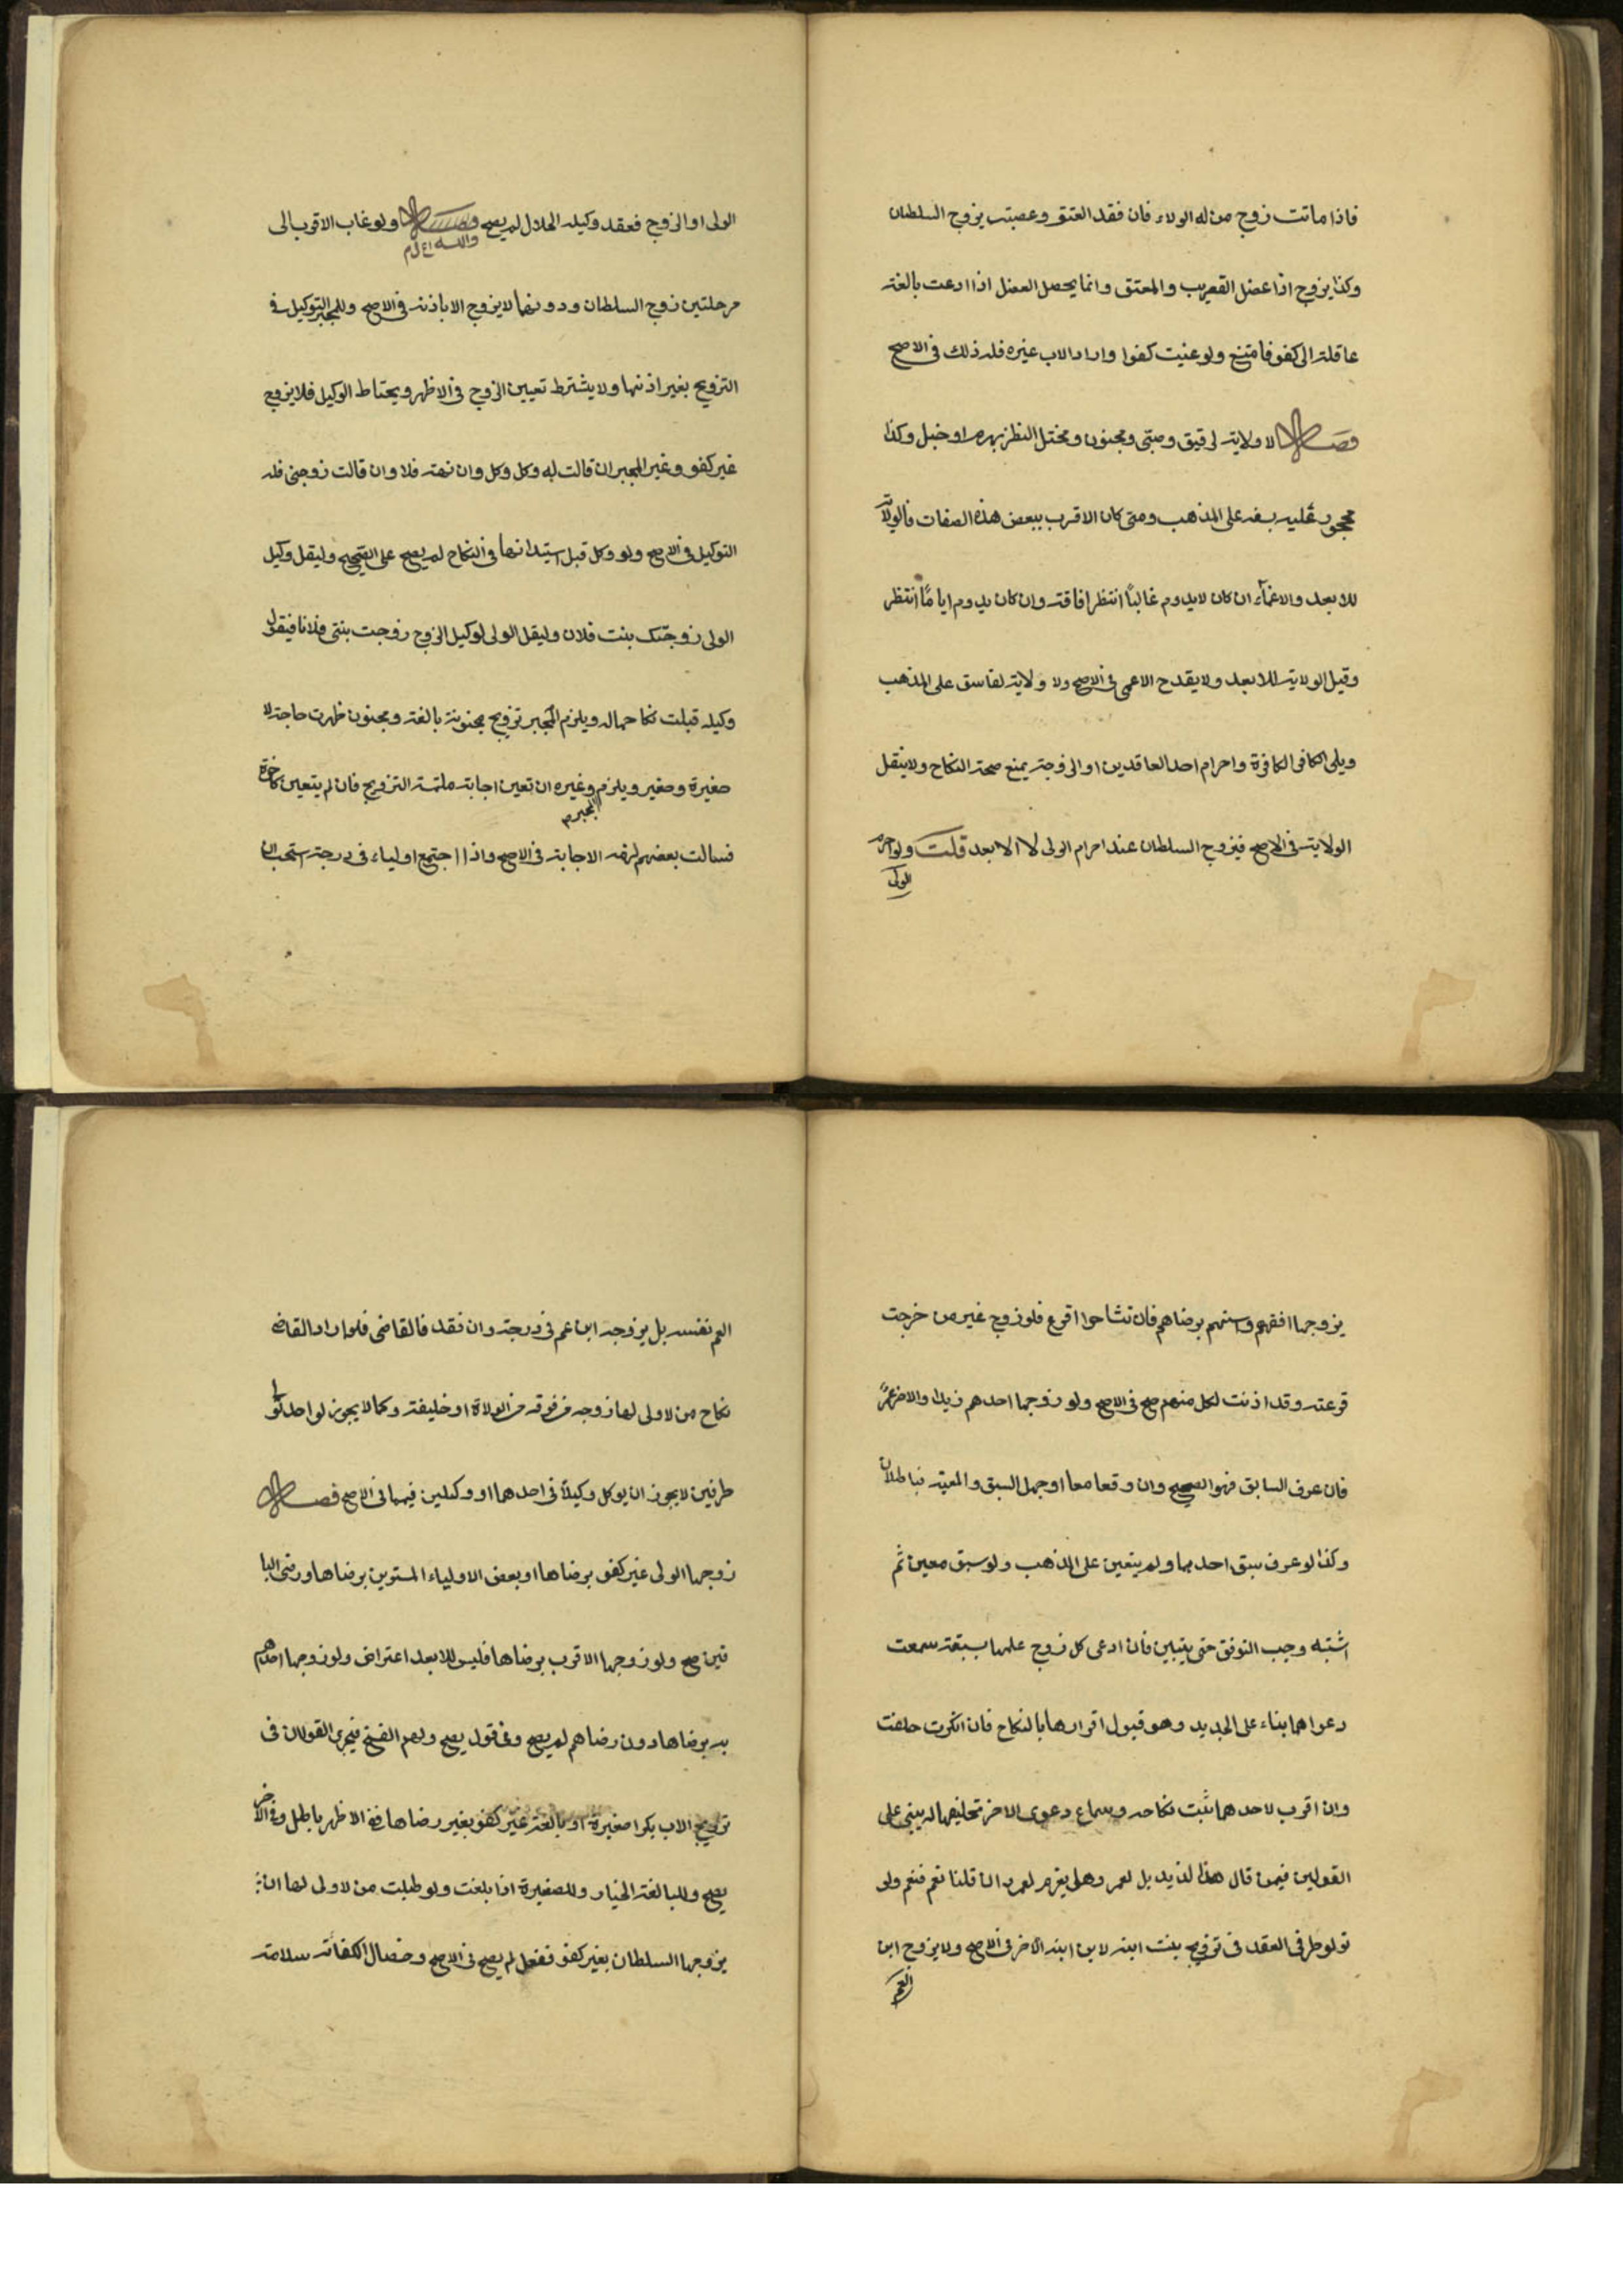 فاذا ماتت زوج من له الولاء فان فقد المعتق وعصبته يزوج السلطان
وكذا يزوج اذا عضل القريب والمعتق وانما يحصل العضل اذا ادعت بالغة
عاقلة الى كفو فامتنع ولو عنيت كفوا واراد الاب غيره فله ذلك في الاصح
فصل لا ولاية لرقيق وصبى ومجنون ومختل النظر بهرم او خبل وكذا
محجور عليه بسفه على المذهب ومتى كان الاقرب ببعض هذه الصفات فالولاية
للابعد والاغماء ان كان لا يدوم غالباً انتظر افاقته وان كان يدوم اياماً انتظر
وقيل الولاية للابعد ولا يقدح الاعمى في الاصح ولا ولاية لفاسق على المذهب
ويلى الكافر الكافرة واحرام احد العاقدين او الزوجة يمنع صحة النكاح ولا ينقل
الولاية في الاصح فيزوج السلطان عند احرام الولى لا الابعد قلت ولو احرم
الولى
الولى او الزوج فعقد وكيله الحلال لم يصح فصل ولو غاب الاقرب الى
والله اعلم
مرحلتين زوج السلطان ودونهما لا يزوج الا باذنه في الاصح وللمجبر التوكيل في
التزويج بغير اذنها ولا يشترط تعيين الزوج في الاظهر ويحتاط الوكيل فلا يزوج
غير كفو وغير المجبر ان قالت له وكل وكل وان نهته فلا وان قالت زوجني فله
التوكيل في الاصح ولو وكل قبل استيذانها في النكاح لم يصح على الصحيح وليقل وكيل
الولى زوجتك بنت فلان وليقل الولى لوكيل الزوج زوجت بنتى فلانا فيقول
وكيله قبلت نكاحها له ويلزم المجبر تزويج مجنونة بالغة ومجنون ظهرت حاجته لا
صغيرة وصغير ويلزم وغيره ان تعين اجابة ملتمسة التزويج فان لم يتعين كاخوة
المجبر م
فسالت بعضهم لزمه الاجابة في الاصح واذا اجتمع اولياء في درجة استحب ان
يزوجها افقههم واسنهم برضاهم فان تشاحوا اقرع فلو زوج غير من خرجت
قرعته وقد اذنت لكل منهم صح في الاصح ولو زوجها احدهم زيدا والاخر عمراً
فان عرف السابق فهو الصحيح وان وقعا معا او جهل السبق والمعية فباطلان
وكذا لو عرف سبق احدهما ولم يتعين على المذهب ولو سبق معين ثم
اشتبه وجب التوقف حتى يتبين فان ادعى كل زوج علمها بسبقه سمعت
دعواهما بناء على الجديد وهو قبول اقرارها بالنكاح فان انكرت حلفت
وان اقرت لاحدهما ثبت نكاحه وسماع دعوى الاخر تحليفها له يبنى على
القولين فيمن قال هذا لزيد بل لعمرو هل يغرم لعمرو ان قلنا نعم فنعم ولو
تولى طرفى العقد في تزويج بنت ابنه لابن ابنه الاخر في الاصح ولا يزوج ابن
العم
العم نفسه بل يزوجه ابن عم في درجته وان فقد فالقاضى فلو اراد القاضى
نكاح من لا ولى لها زوجه من فوقه من الولاة او خليفته وكما لا يجوز لواحد تولى
طرفين لا يجوز ان يوكل وكيلاً في احدهما او وكيلين فيهما في الاصح فصل
زوجها الولى غير كفو برضاها او بعض الاولياء المستوين برضاها ورضى البا
قين صح ولو زوجها الاقرب برضاها فليس للابعد اعتراض ولو زوجها احدهم
به برضاها دون رضاهم لم يصح وفي قول يصح ولهم الفسخ ويجرى القولان في
تزويج الاب بكرا صغيرة او بالغة غير كفو بغير رضاها ففي الاظهر باطل وفي الاخر
يصح وللبالغة الخيار وللصغيرة اذا بلغت ولو طلبت من لا ولى لها ان
يزوجها السلطان بغير كفو ففعل لم يصح في الاصح وخصال الكفائة سلامة